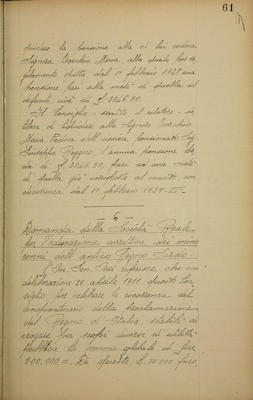 61
la pensione alla di lui vedova
Signora Tocchio Maria alla quale per re-
golamento spetta dal 1° febbraio 1928 una
pensione pari alla metà di quella del
defunto, cioè di £. 2026,50.
Il Consiglio - sentito il relatore - de-
libera di liquidare alla Signora
Maria vedova dell'usciere pensionato Sig.
Giuseppe Ruggero, l'annua pensione vitali-
zia di £. 2026,50, pari ad una metà
di quella già corrisposta al marito, con
decorrenza dal 1° febbraio
6
Domanda della Società Reale
per l'educazione correttiva dei mino-
renni dell'antico Regno Sardo.
L'On. Sen. riferisce che con
deliberazione 26 aprile 1911 questo Con-
siglio per celebrare la ricorrenza del
cinquantenario della proclamazione
del Regno d'Italia stabilì di
erogare per scopi diversi di utilità
pubblica la somma globale di lire
500.000,=. Di queste, £. 20.000 furo-